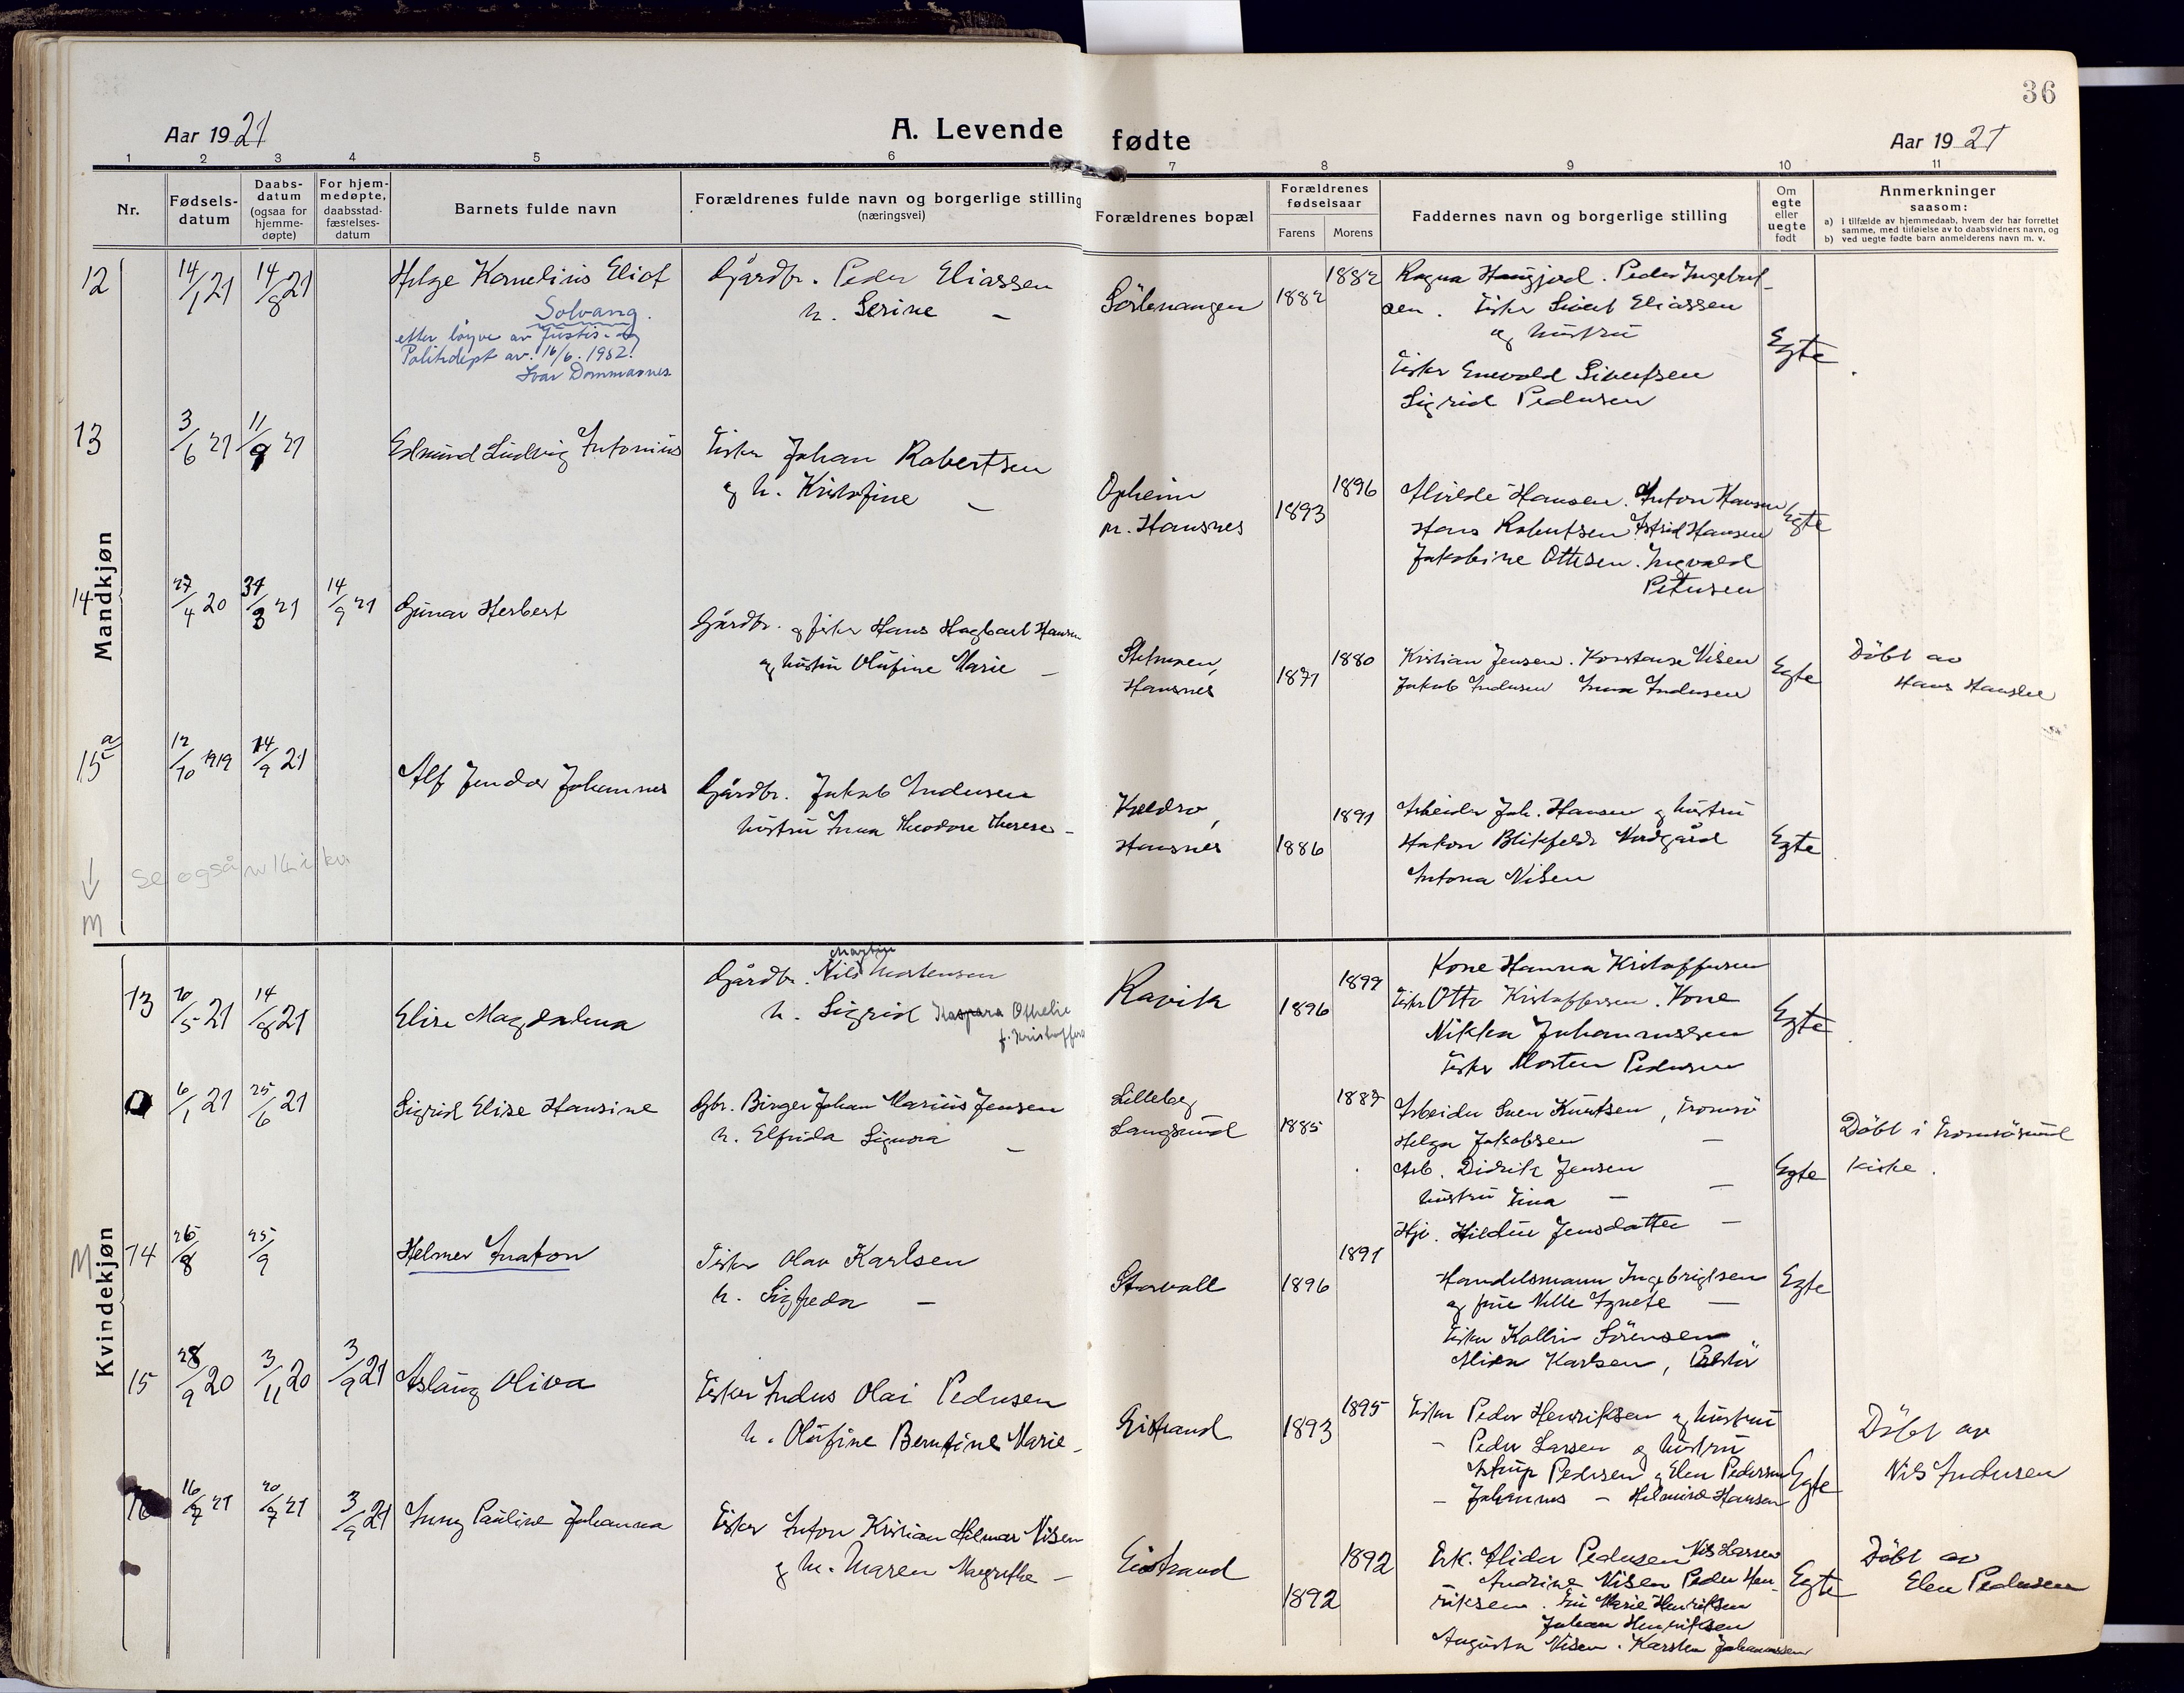 36
Aar 1921
A. Levende fødte
Aar 1921
1 2 3 4 5 6 7 8 9 10 11
Nr.
Fødsels-
datum
Daabs-
datum
(ogsaa for
hjemme-
døpte)
For hjem-
medøpte,
daabsstad-
fæstelses-
datum
Barnets fulde navn
Forældrenes fulde navn og borgerlige stilling
(næringsvei)
Forældrenes bopæl
Forældrenes
fødselsaar
Farens
Morens
Faddernes navn og borgerlige stilling
Om
egte
eller
uegte
født
Anmerkninger
saasom:
a) i tilfælde av hjemmedaab, hvem der har forrettet
samme, med tilføielse av to daabsvidners navn, og
b) ved uegte fødte barn anmelderens navn m. v.
Mandkjøn
12
14/1 21
14/8 21
Helge Kornelius Eliot
Solvang.
etter løyve av Justis- og
Politidept av 16/6. 1952.
Ivar Dommasnes
Gårdbr. Peder Eliassen
h. Serine –
Sørlenangen
1882
1882
Ragna Haugjord. Peder Ingebrigt-
sen. Fisker Sivert Eliassen
og hustru
Fisker Enevold Sivertsen
Sigrid Pedersen
Egte
13
3/6 21
11/9 21
Edmund Ludvig Antonius
Fisker Johan Robertsen
og h. Kristofine –
Opheim
pr. Hansnes
1893
1896
Alvilde Hansen. Anton Hansen
Hans Robertsen Astrid Hansen
Jakobine Ottesen. Ingvald
Petersen
Egte
14
27/4 20
31/3 21
14/9 21
Gunar Herbert
Gårdbr. og fisker Hans Hagbart Hansen
og hustru Olufine Marie –
Hansnes
1871
1880
Kristian Jensen. Konstanse Nilsen
Jakob Andersen Anna Andersen
Egte
Döbt av
15 a
12/10 1919
14/9 21
Alf Jendor Johannes
Gårdbr. Jakob Andersen
hustru Anna Theodore Therese –
Hansnes
1886
1891
Arbeider Joh. Hansen og hustru
Hakon Blikfeldt Nordgård
Antona Nilsen
Egte
se også
M
Kvindekjøn
13
10/5 21
14/8 21
Elise Magdalena
Martin
Gårdbr. Nils Mortensen
h. Sigrid Kaspara Othelie
f. Kristoffers
Ravik
1896
1899
Kone Hanna Kristoffersen
Fisker Otto Kristoffersen. Kone
Nikka Johannessen
Fisker Morten Pedersen
Egte
6/1 21
25/6 21
Sigrid Elise Hansine
Gbr. Birger Johan Marius Jensen
h. Elfrida Signora –
Lilleberg
Langsund
1885
1887
Arbeider Sven Knutsen, Tromsö
Helga Jakobsen –
Arb. Didrik Jensen
hustru Tina – –
Hj. Hildur Jensdatter –
Egte
Döbt i Tromsösund
Kirke.
M
14
26/8
25/9
Helmer Anaton
Fisker Olav Karlsen
h. Sigfreda –
Storvoll
1896
1891
Handelsmann Ingebrigtsen
og frue Nelle Agnete –
Fisker Kollin Sörensen
Karlsen,
Egte
15
28/9 20
3/11 20
3/9 21
Aslaug Oliva
Fisker Anders Olai Pedersen
h. Olufine Berntine Marie –
Gistrand
1893
1895
Fisker Peder Henriksen og hustru
– Peder Larsen og hustru
Astrup Pedersen og Elen Pedersen
– Johannes – Helmine Hansen
Egte
Döbt av
Nils Andersen
16
16/7 21
20/7 21
3/9 21
Anny Pauline Johanna
Fisker Anton Kristian Hilmar Nilsen
og h. Maren Margrethe –
Gistrand
1892
1892
Enk. Alida Pedersen Nils Larsen
– Andrine Nilsen Peder Hen-
riksen. Marie Henriksen
Johan Henriksen
Augusta Nilsen. Karsten Johannessen
Egte
Döbt av
Elen Pedersen